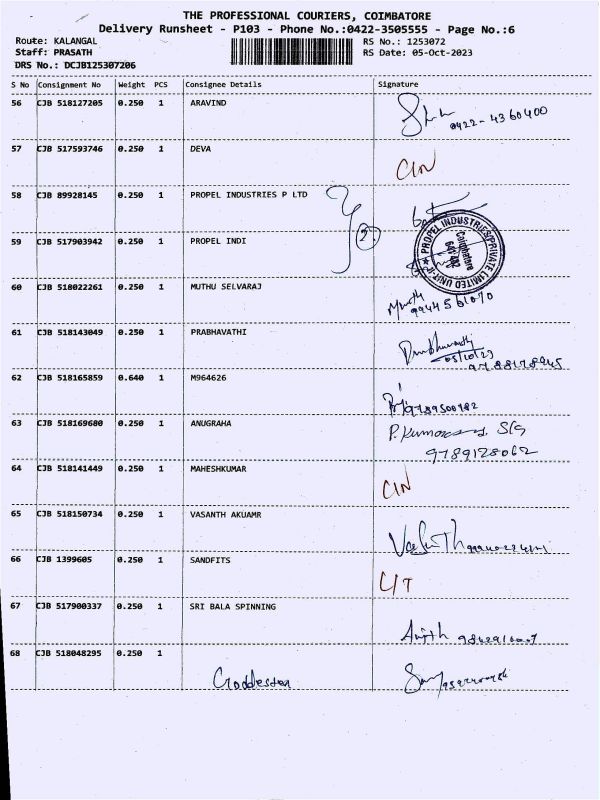 THE PROFESSIONAL COURIERS, COIMBATORE
Delivery Runsheet - P103 - Phone No.:0422-3505555 - Page No.:6
Route: KALANGAL
RS No.: 1253072
Staff: PRASATH
RS Date: 05-Oct-2023
DRS No.: DCJB125307206
S No Consignment No Weight PCS Consignee Details Signature
56 CJB 518127205 0.250 1 ARAVIND
0422-4360400
57 CJB 517593746 0.250 1 DEVA
CIN
58 CJB 89928145 0.250 1 PROPEL INDUSTRIES P LTD
59 CJB 517903942 0.250 1 PROPEL INDI
2
PROPEL INDUSTRIES PRIVATE LIMITED UNIT-II
Coimbatore
641 402
60 CJB 518022261 0.250 1 MUTHU SELVARAJ
9944561070
61 CJB 518143049 0.250 1 PRABHAVATHI
05/10/23
62 CJB 518165859 0.640 1 M964626
63 CJB 518169680 0.250 1 ANUGRAHA
9789128062
64 CJB 518141449 0.250 1 MAHESHKUMAR
CIN
65 CJB 518150734 0.250 1 VASANTH AKUAMR
66 CJB 1399605 0.250 1 SANDFITS
L/T
67 CJB 517900337 0.250 1 SRI BALA SPINNING
Anjith
68 CJB 518048295 0.250 1